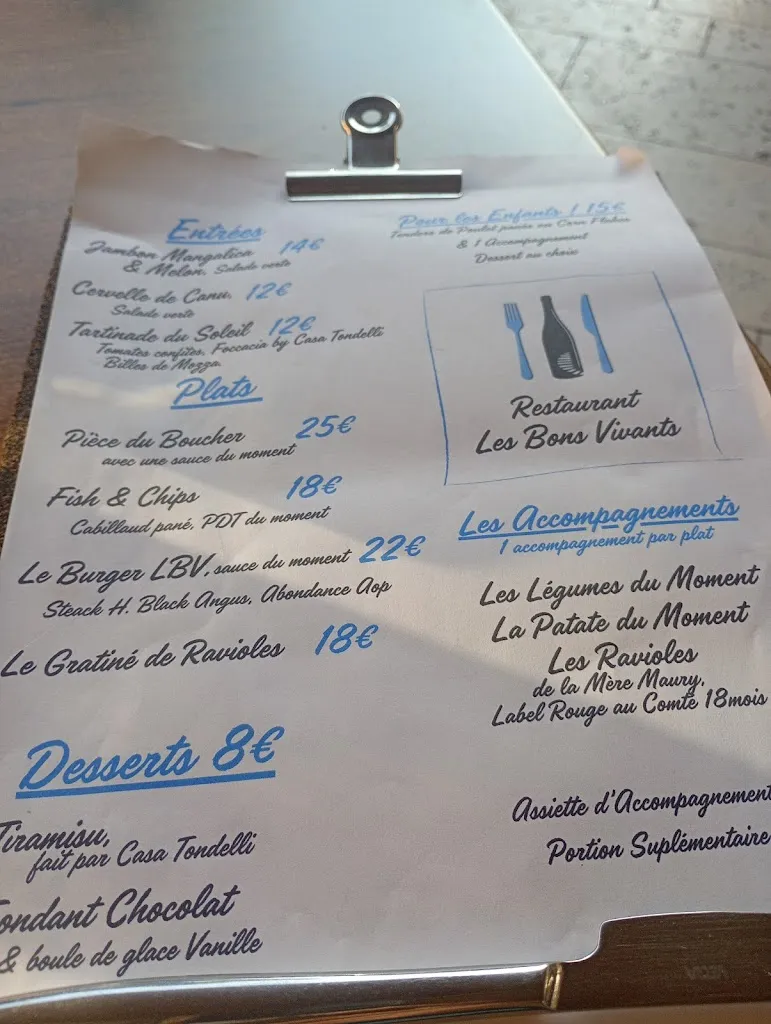 Entrées
Jambon Mangalica 14€
& Melon, Salade verte
Cervelle de Canu, 12€
Salade verte
Tartinade du Soleil 12€
Tomates confites, Foccacia by Casa Tondelli
Billes de Mozza.
Plats
Pièce du Boucher 25€
avec une sauce du moment
Fish & Chips 18€
Cabillaud pané, PDT du moment
Le Burger LBV, sauce du moment 22€
Steack H. Black Angus, Abondance Aop
Le Gratiné de Ravioles 18€
Desserts 8€
Tiramisu,
fait par Casa Tondelli
Fondant Chocolat
& boule de glace Vanille
Pour les Enfants / 15€
Tenders de Poulet panés au Corn Flakes
& 1 Accompagnement
Dessert au choix
Restaurant
Les Bons Vivants
Les Accompagnements
1 accompagnement par plat
Les Légumes du Moment
La Patate du Moment
Les Ravioles
de la Mère Maury,
Label Rouge au Comté 18mois
Assiette d'Accompagnement
Portion Suplémentaire